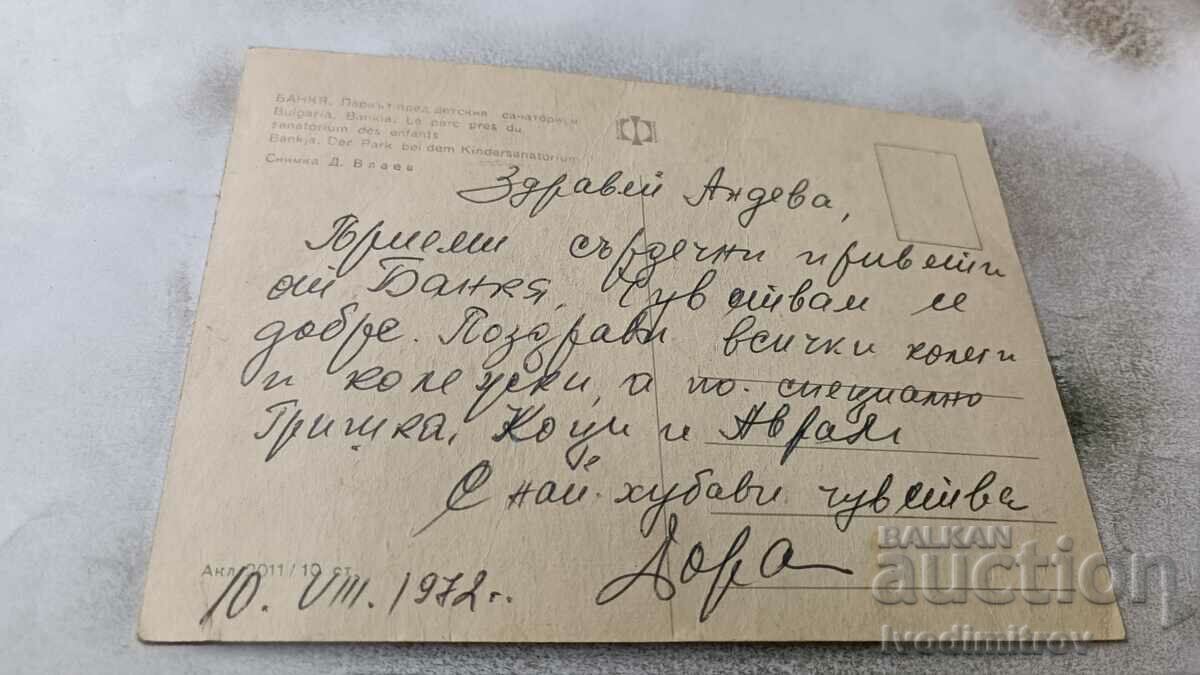 БАНКЯ. Паркът пред детския санаториум
Bulgaria. Bankia. Le parc près du
sanatorium des enfants
Bankja. Der Park bei dem Kindersanatorium
Снимка Д. Влаев
Здравей Андева,
Приеми сърдечни привети
от Банкя. Чувствам се
добре. Поздрави всички колеги
и колежки, а по специално
Гришка, Коци и Аврам
С най-хубави чувства
Дора
Акл 2011/10 ст.
10. VIII. 1972 г.
BALKAN
auction
Ivodimitrov